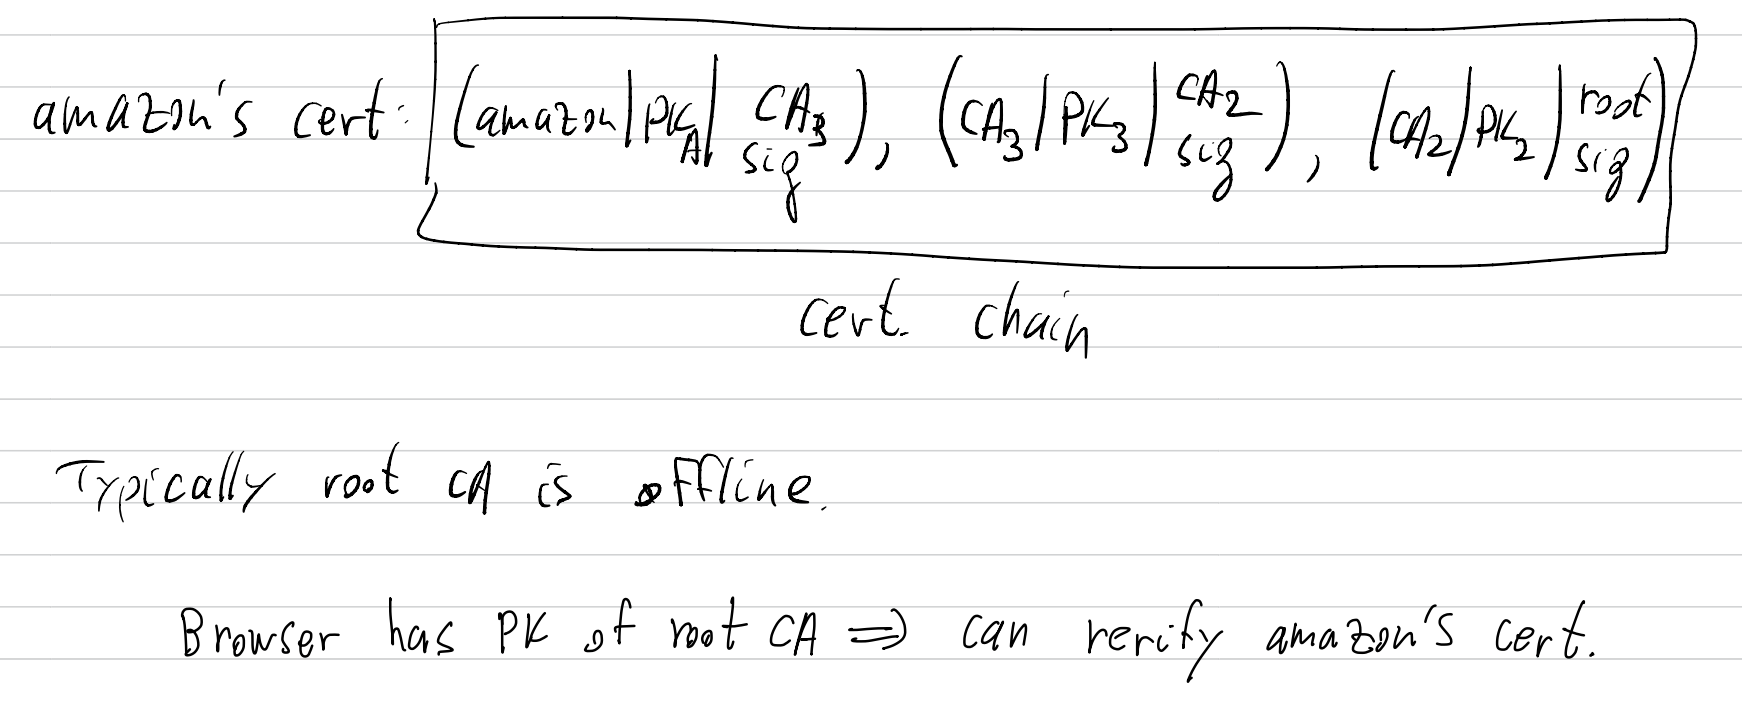 amazon's cert: (amazon|PK_A|CA_3 sig), (CA_3|PK_3|CA_2 sig), (CA_2|PK_2|root sig)
cert. chain
Typically root CA is offline.
Browser has PK of root CA ⇒ can verify amazon's cert.